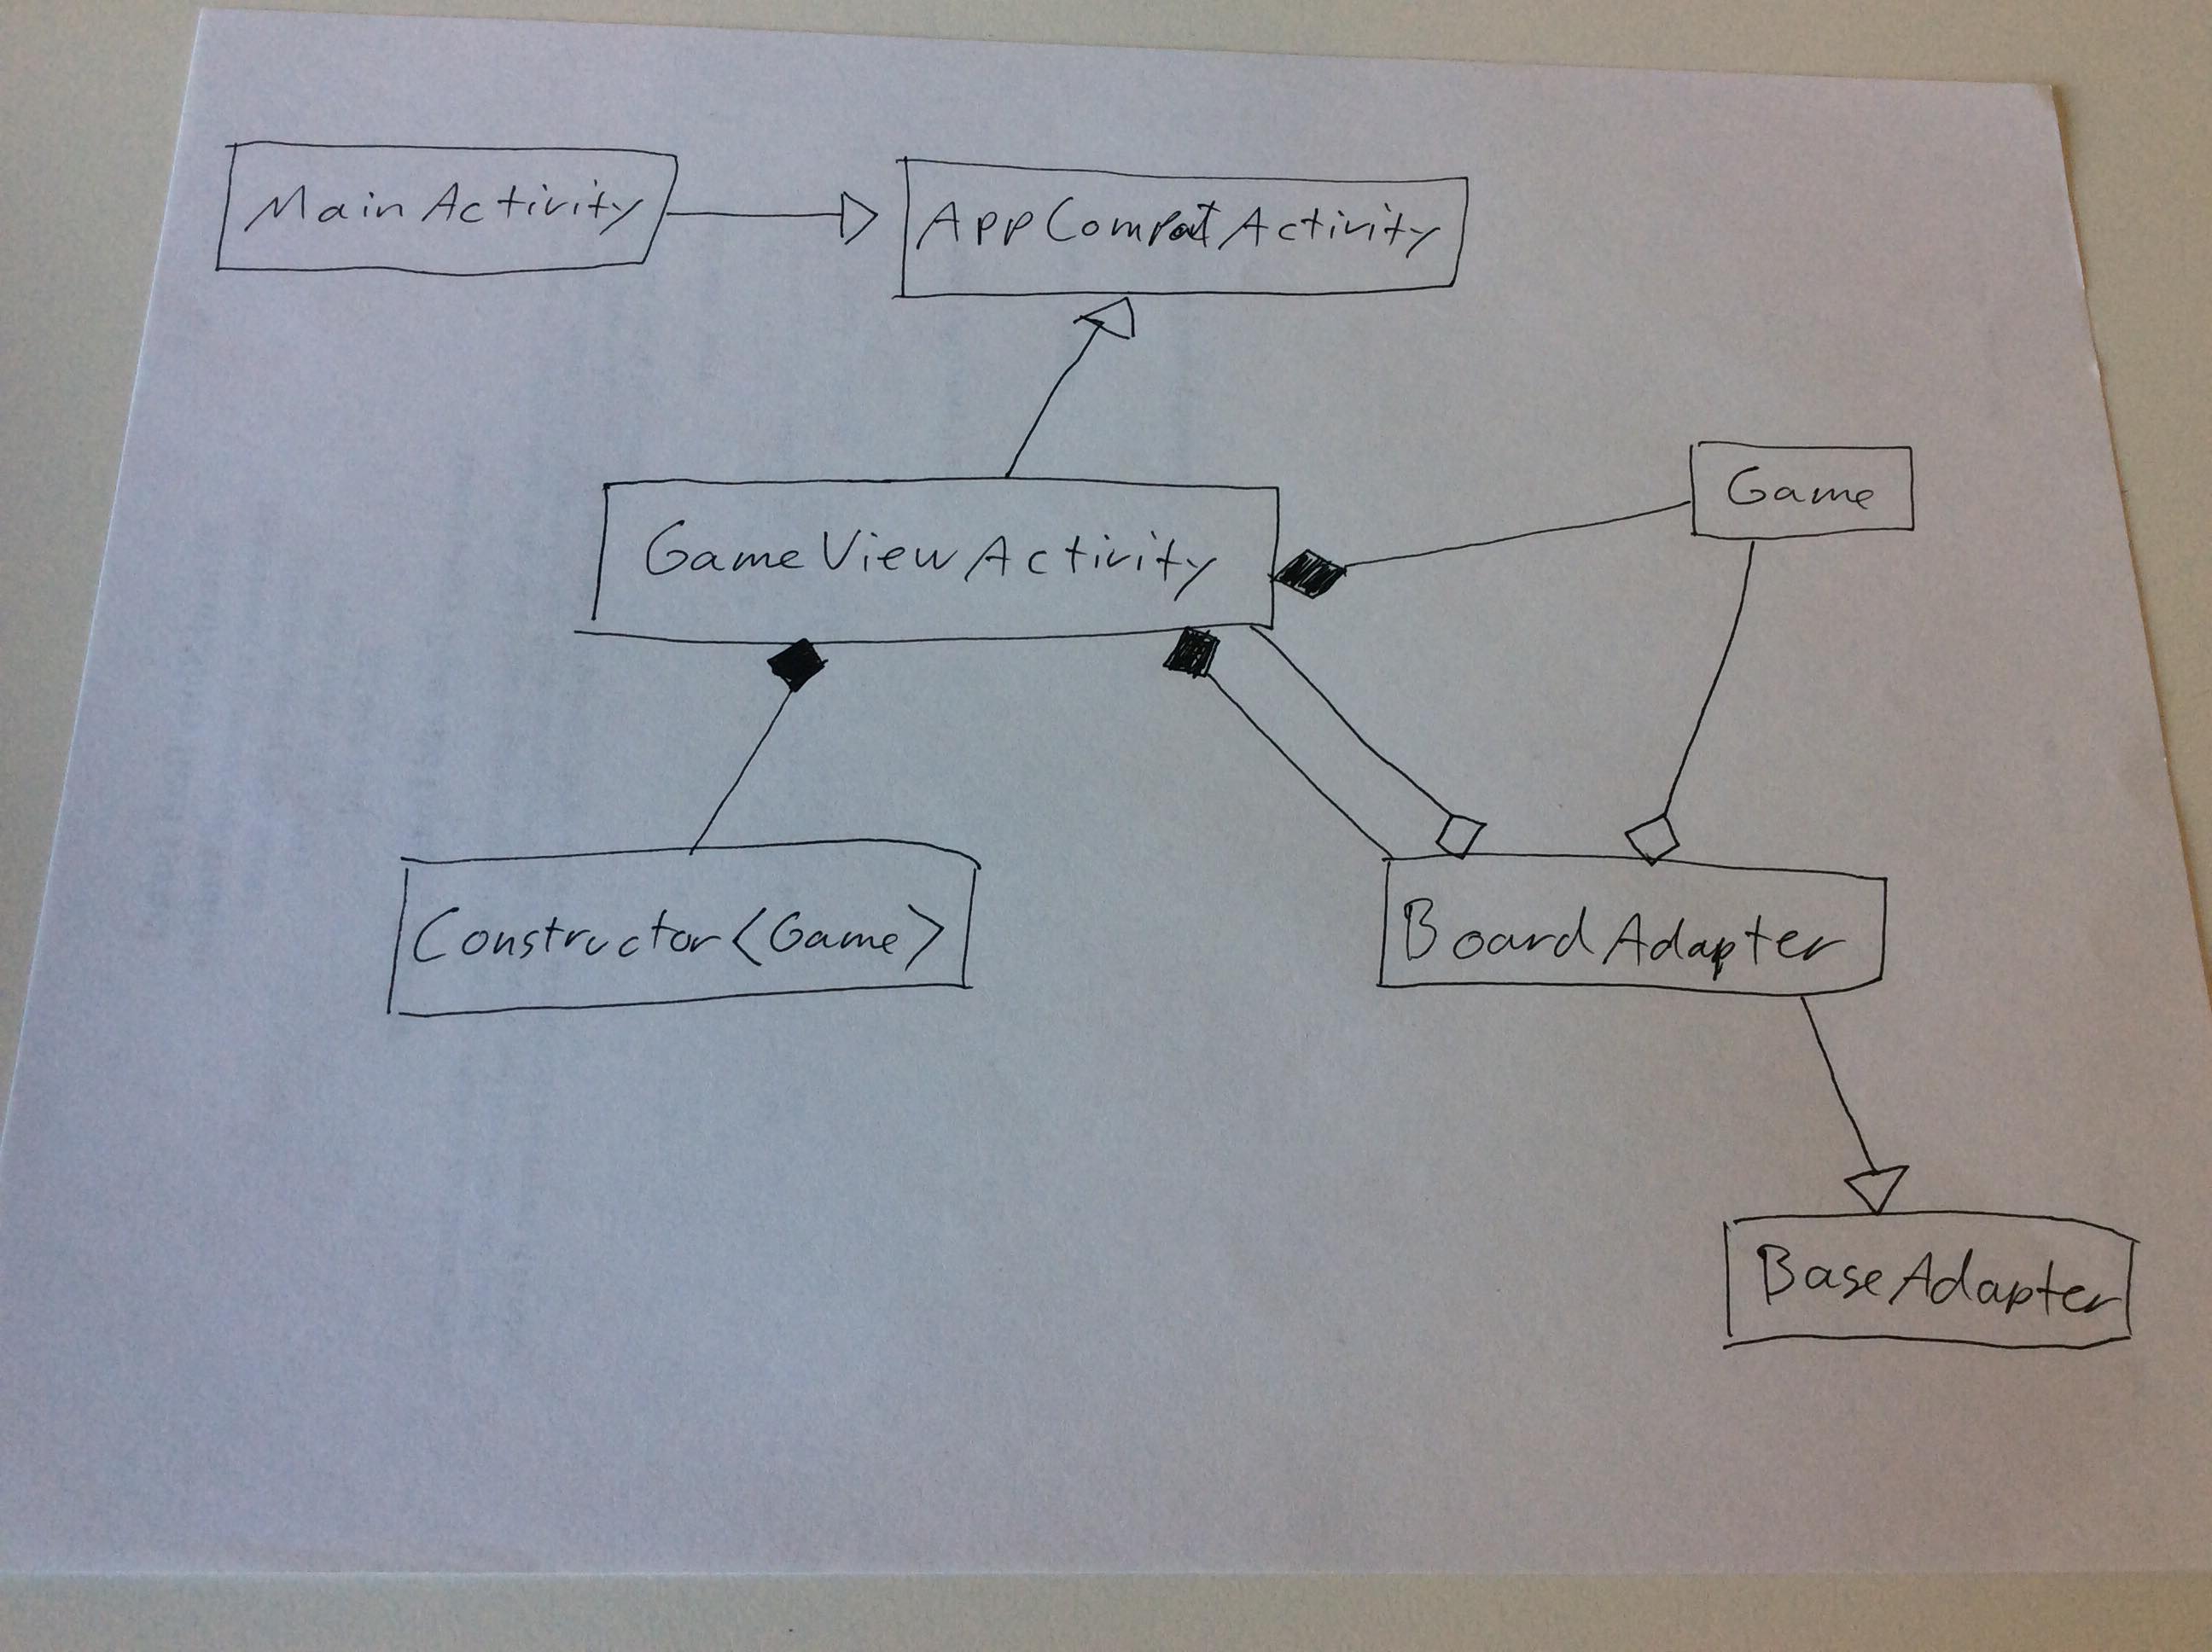 MainActivity
AppCompatActivity
Game
GameViewActivity
Constructor<Game>
BoardAdapter
BaseAdapter